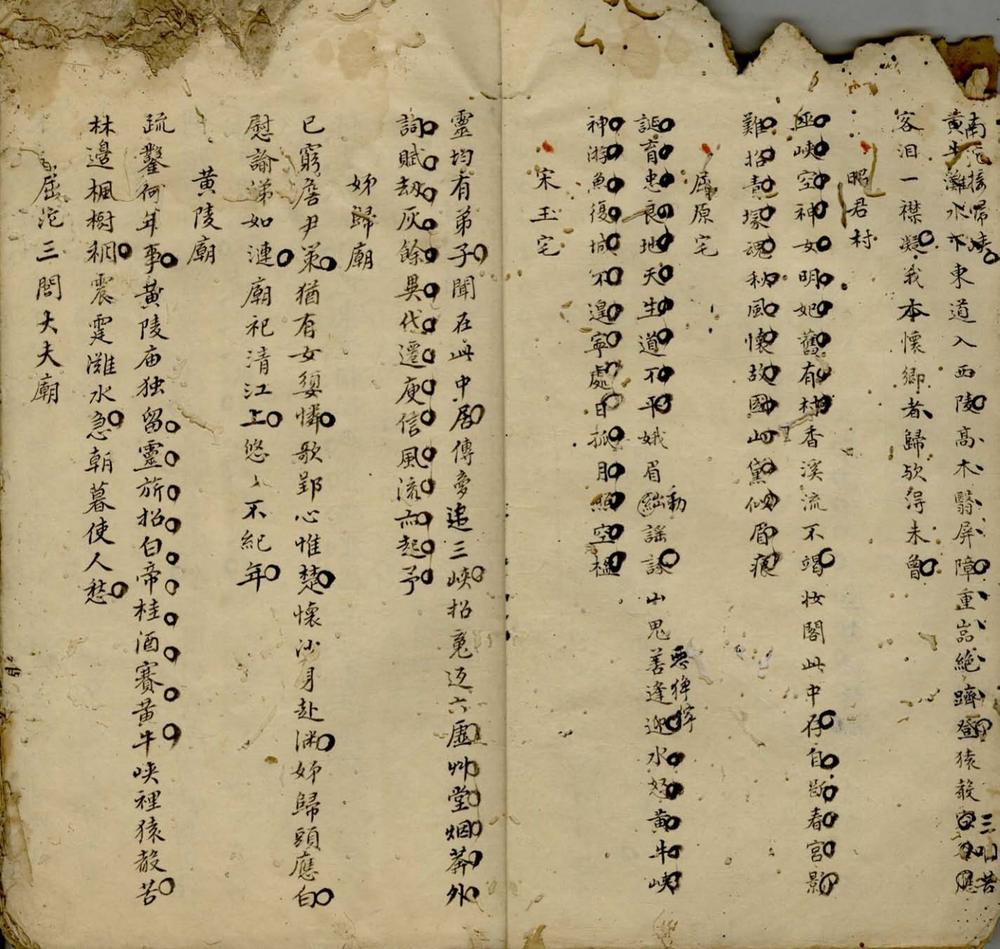 黃牛灘水下東道入西陵高木翳屏障重嵓絕躋登猿聲
南沱接歸峽
三川苦
客泪一襟凝我本懷鄉者歸欤得未曾
昭君村
巫峽空神女明妃舊有村香溪流不竭妝閣此中存自斷春宮影
難招青塚魂秋風懷故國山黛似眉痕
屈原宅
誕育忠良地天生道不平娥眉謠諑山鬼善逢迎水怒黃牛峽
動
神游魚復城不遑寧處日孤月照空楹
宋玉宅
靈均有弟子聞在此中居傳夢追三峽招䰟迈六虛艸堂烟莽外
詞賦劫灰餘異代遷庾信風流而起予
姊歸廟
已窮詹尹策猶有女嬃憐歌郢心惟楚懷沙身赴淵姊歸頭應白
慰諭涕如漣廟祀清江上悠〻不紀年
黃陵廟
疏鑿何年事黃陵庙独留靈旂招白帝桂酒賽黃牛峽裡猿聲苦
林邊楓樹稠震霆灘水急朝暮使人愁
屈沱三閭大夫廟